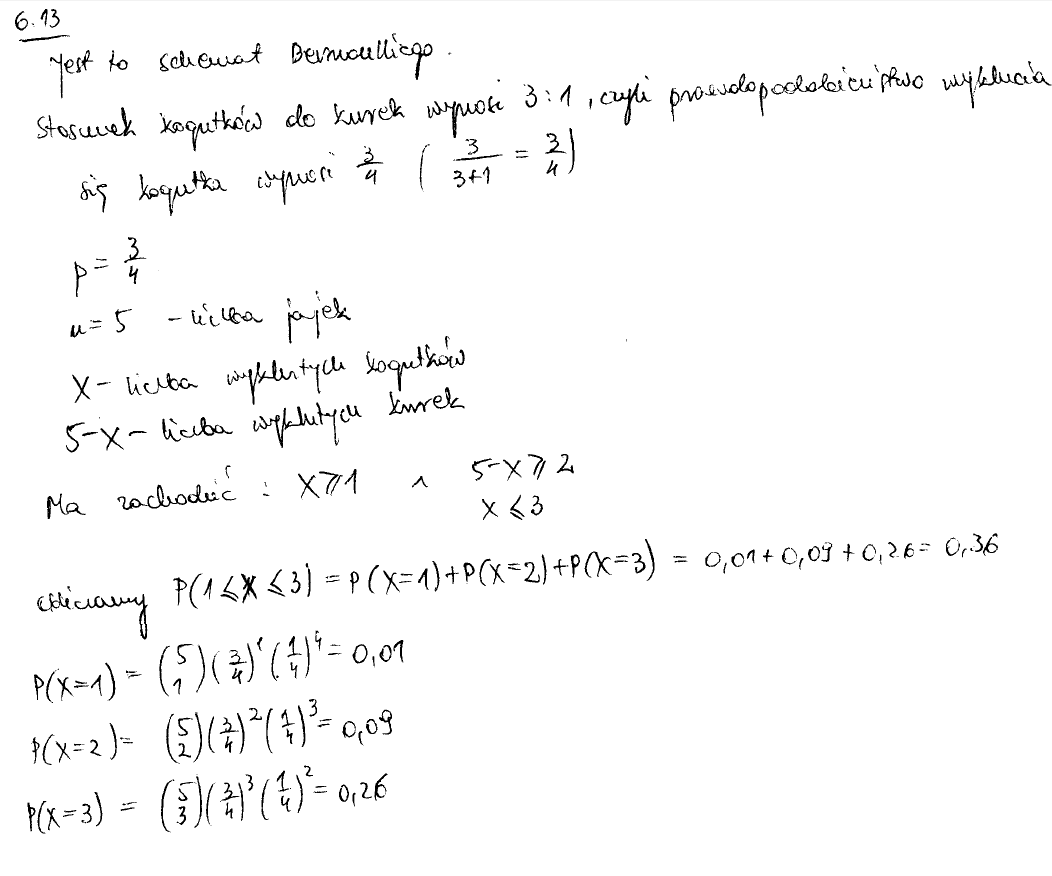 6.13
Jest to schemat Bernoulliego.
Stosunek kogutków do kurek wynosi 3:1, czyli prawdopodobieństwo wyklucia
się kogutka wynosi 3/4 ( 3/(3+1) = 3/4 )
p = 3/4
n = 5 - liczba jajek
X - liczba wyklutych kogutków
5-X - liczba wyklutych kurek
Ma zachodzić : X ⩾ 1 ∧ 5-X ⩾ 2
X ⩽ 3
Obliczamy P(1 ⩽ X ⩽ 3) = P(X=1)+P(X=2)+P(X=3) = 0,01+0,09+0,26 = 0,36
P(X=1) = (5 1)(3/4)^1(1/4)^4 = 0,01
P(X=2) = (5 2)(3/4)^2(1/4)^3 = 0,09
P(X=3) = (5 3)(3/4)^3(1/4)^2 = 0,26